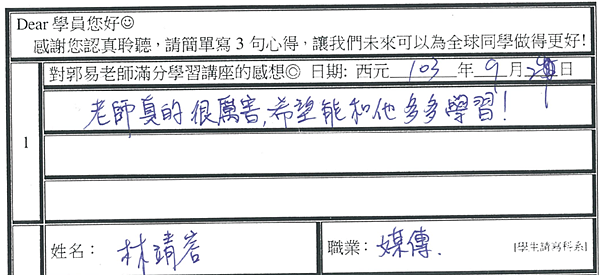 Dear 學員您好☺
感謝您認真聆聽，請簡單寫 3 句心得，讓我們未來可以為全球同學做得更好!
對郭易老師滿分學習講座的感想◎ 日期: 西元 103 年 9 月 日
老師真的很厲害,希望能和他多多學習!
1
姓名： 林靖
職業： 媒傳. [學生請寫科系]